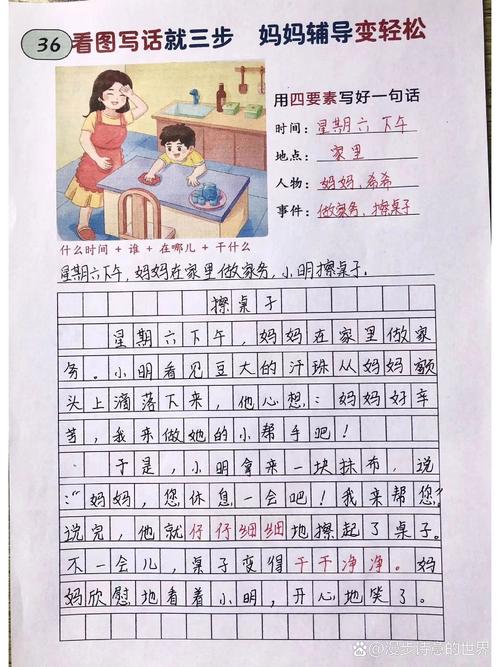 36 看图写话就三步 妈妈辅导变轻松
用四要素写好一句话
时间：星期六下午
地点：家里
人物：妈妈、希希
事件：做家务、擦桌子
什么时间 + 谁 + 在哪儿 + 干什么
星期六下午，妈妈在家里做家务，小明擦桌子。
擦桌子
星期六下午，妈妈在家里做家
务。小明看见豆大的汗珠从妈妈额
头上滴落下来，他心想：妈妈好辛
苦，我来做她的小帮手吧！
于是，小明拿来一块抹布，说
：“妈妈，您休息一会吧！我来帮您”
说完，他就仔仔细细地擦起了桌子。
不一会儿，桌子变得干干净净。妈
妈欣慰地看着小明，开心地笑了。
@漫步诗意的世界